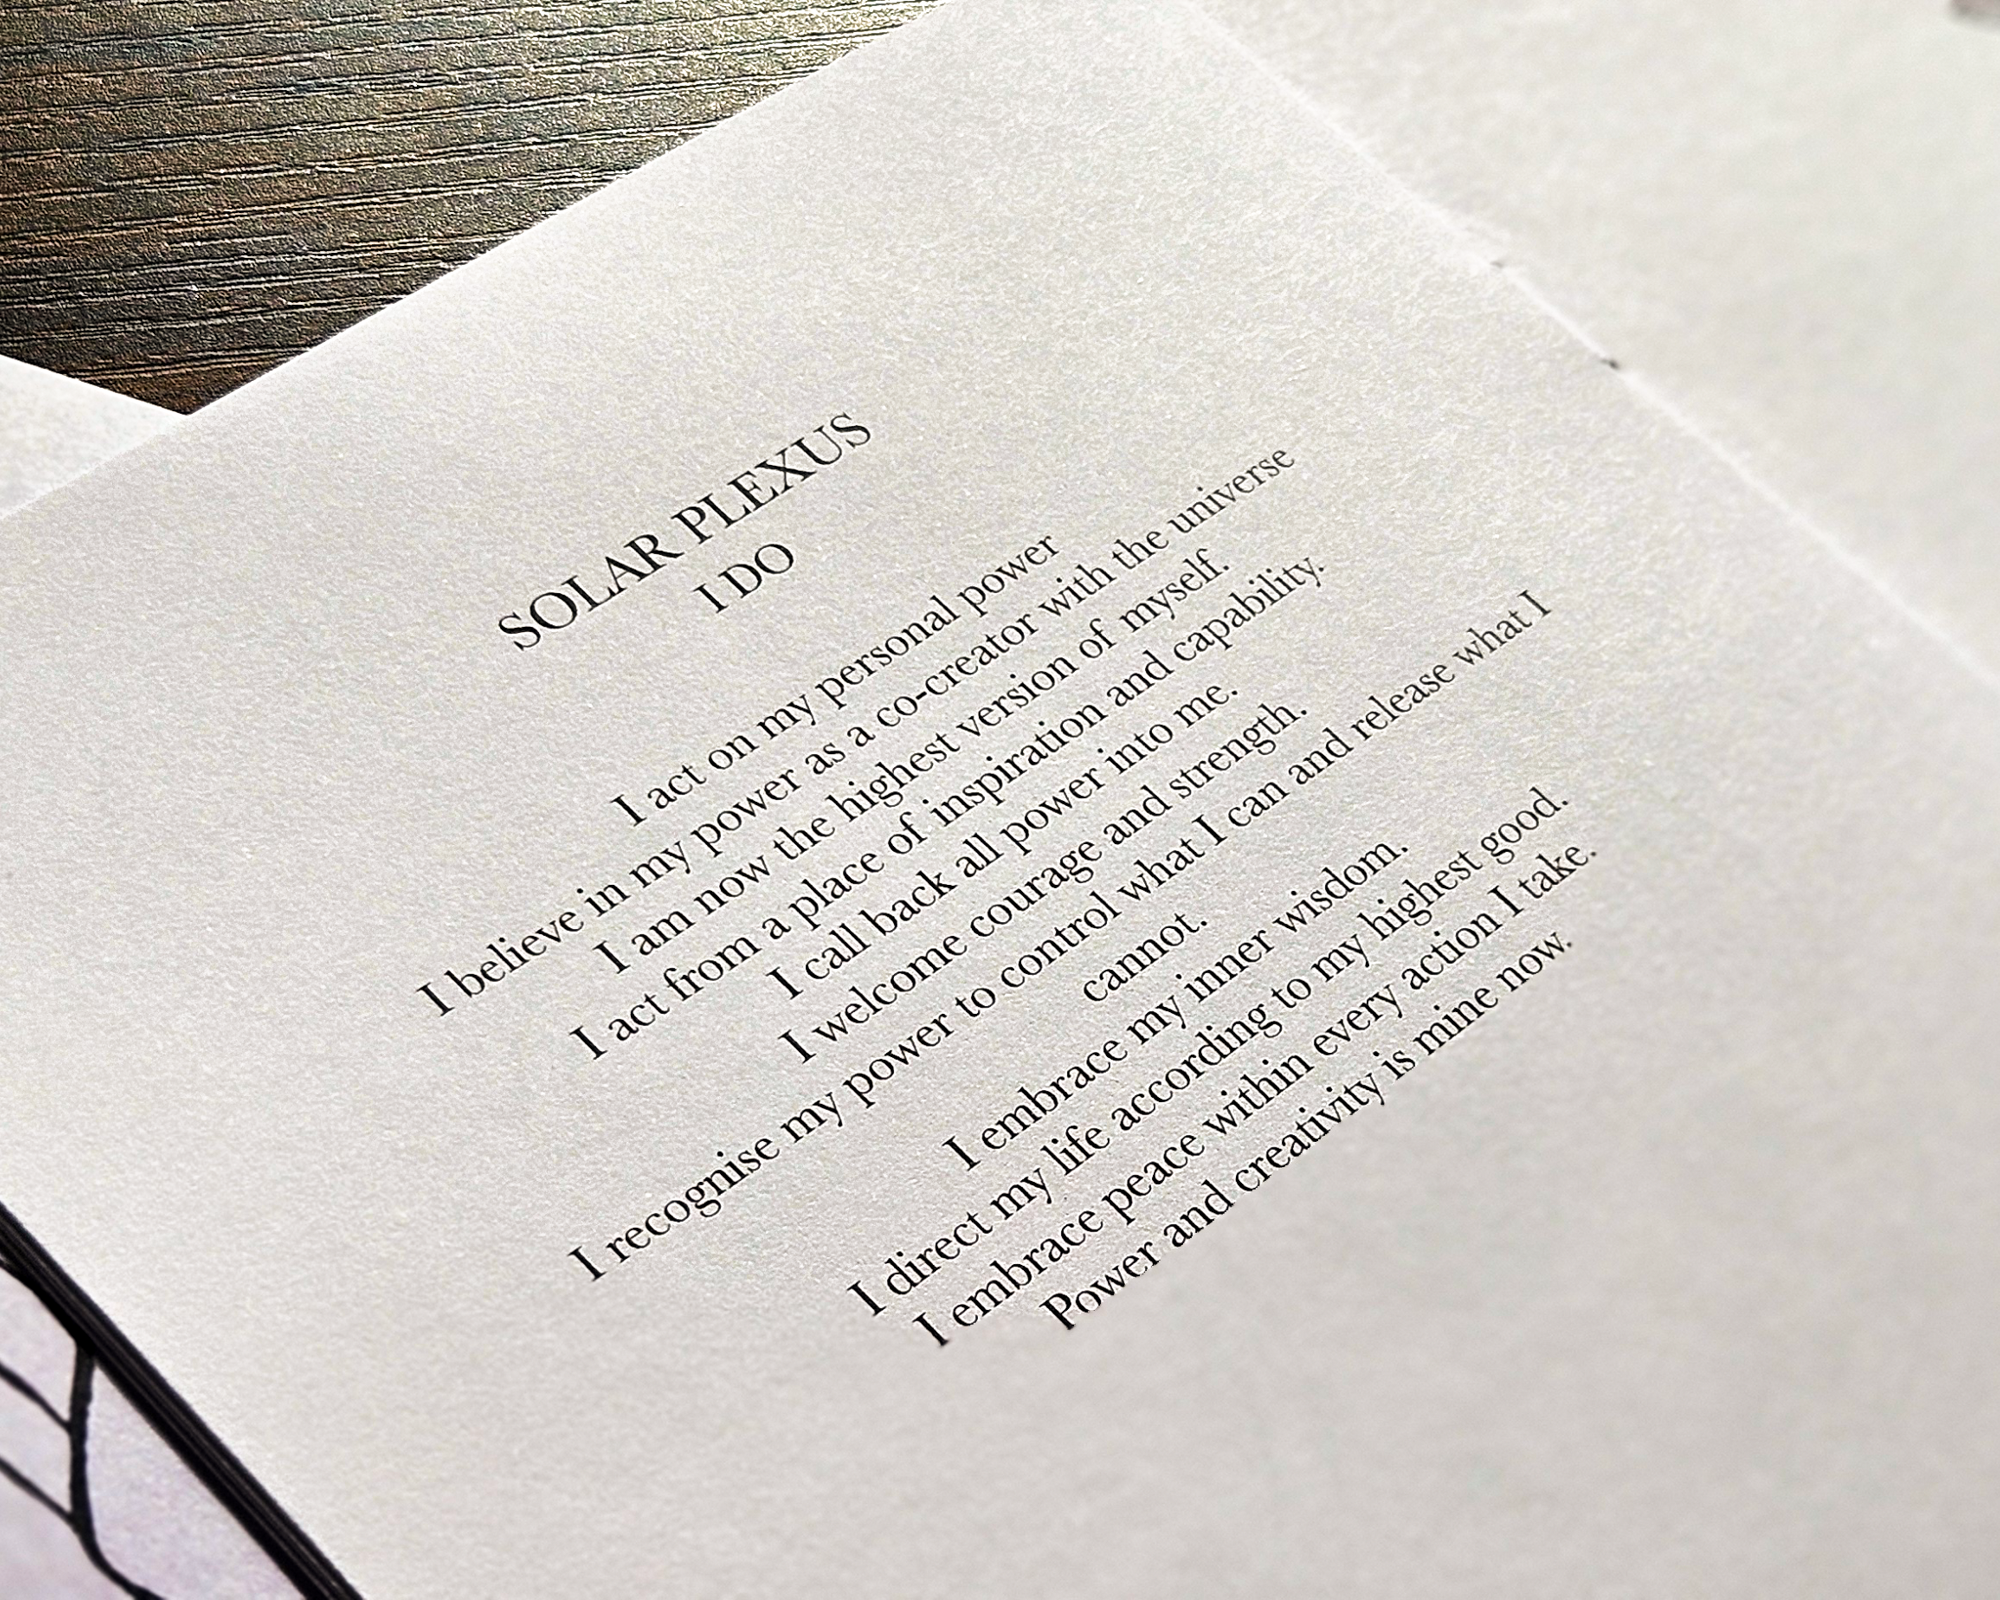 SOLAR PLEXUS
I DO
I act on my personal power
I believe in my power as a co-creator with the universe
I am now the highest version of myself.
I act from a place of inspiration and capability.
I call back all power into me.
I welcome courage and strength.
I recognise my power to control what I can and release what I
cannot.
I embrace my inner wisdom.
I direct my life according to my highest good.
I embrace peace within every action I take.
Power and creativity is mine now.